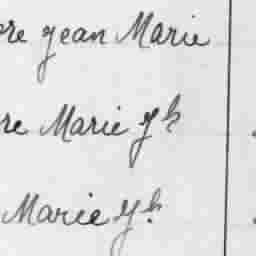 re Jean Marie
re Marie Jh
Marie Jh.